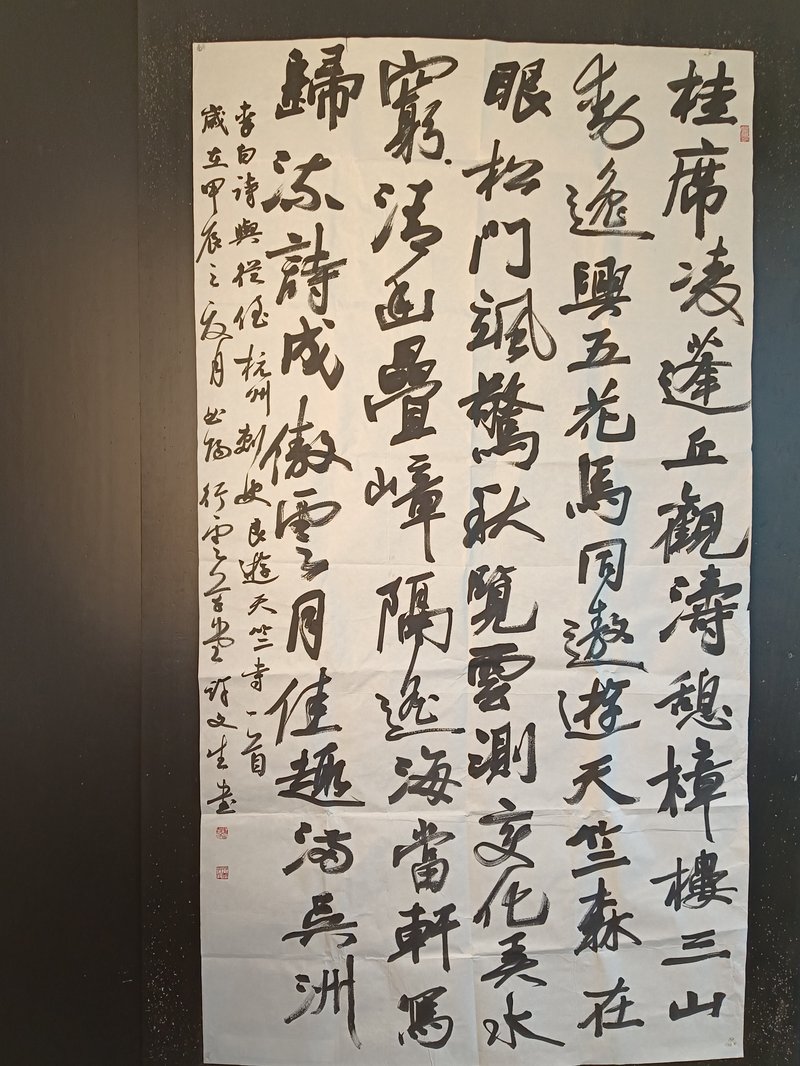 桂席凌蓬丘觀濤憩樟樓三山
動逸興五花馬同遨遊天竺森在
眼松門颯驚秋覽雲測变化弄水
窮清幽疊嶂隔遙海當軒寫
歸流詩成傲雲月佳趣滿吳洲
李白詩與從侄杭州刺史良遊天竺寺一首
歲在甲辰之夏月行雲草堂許文生書